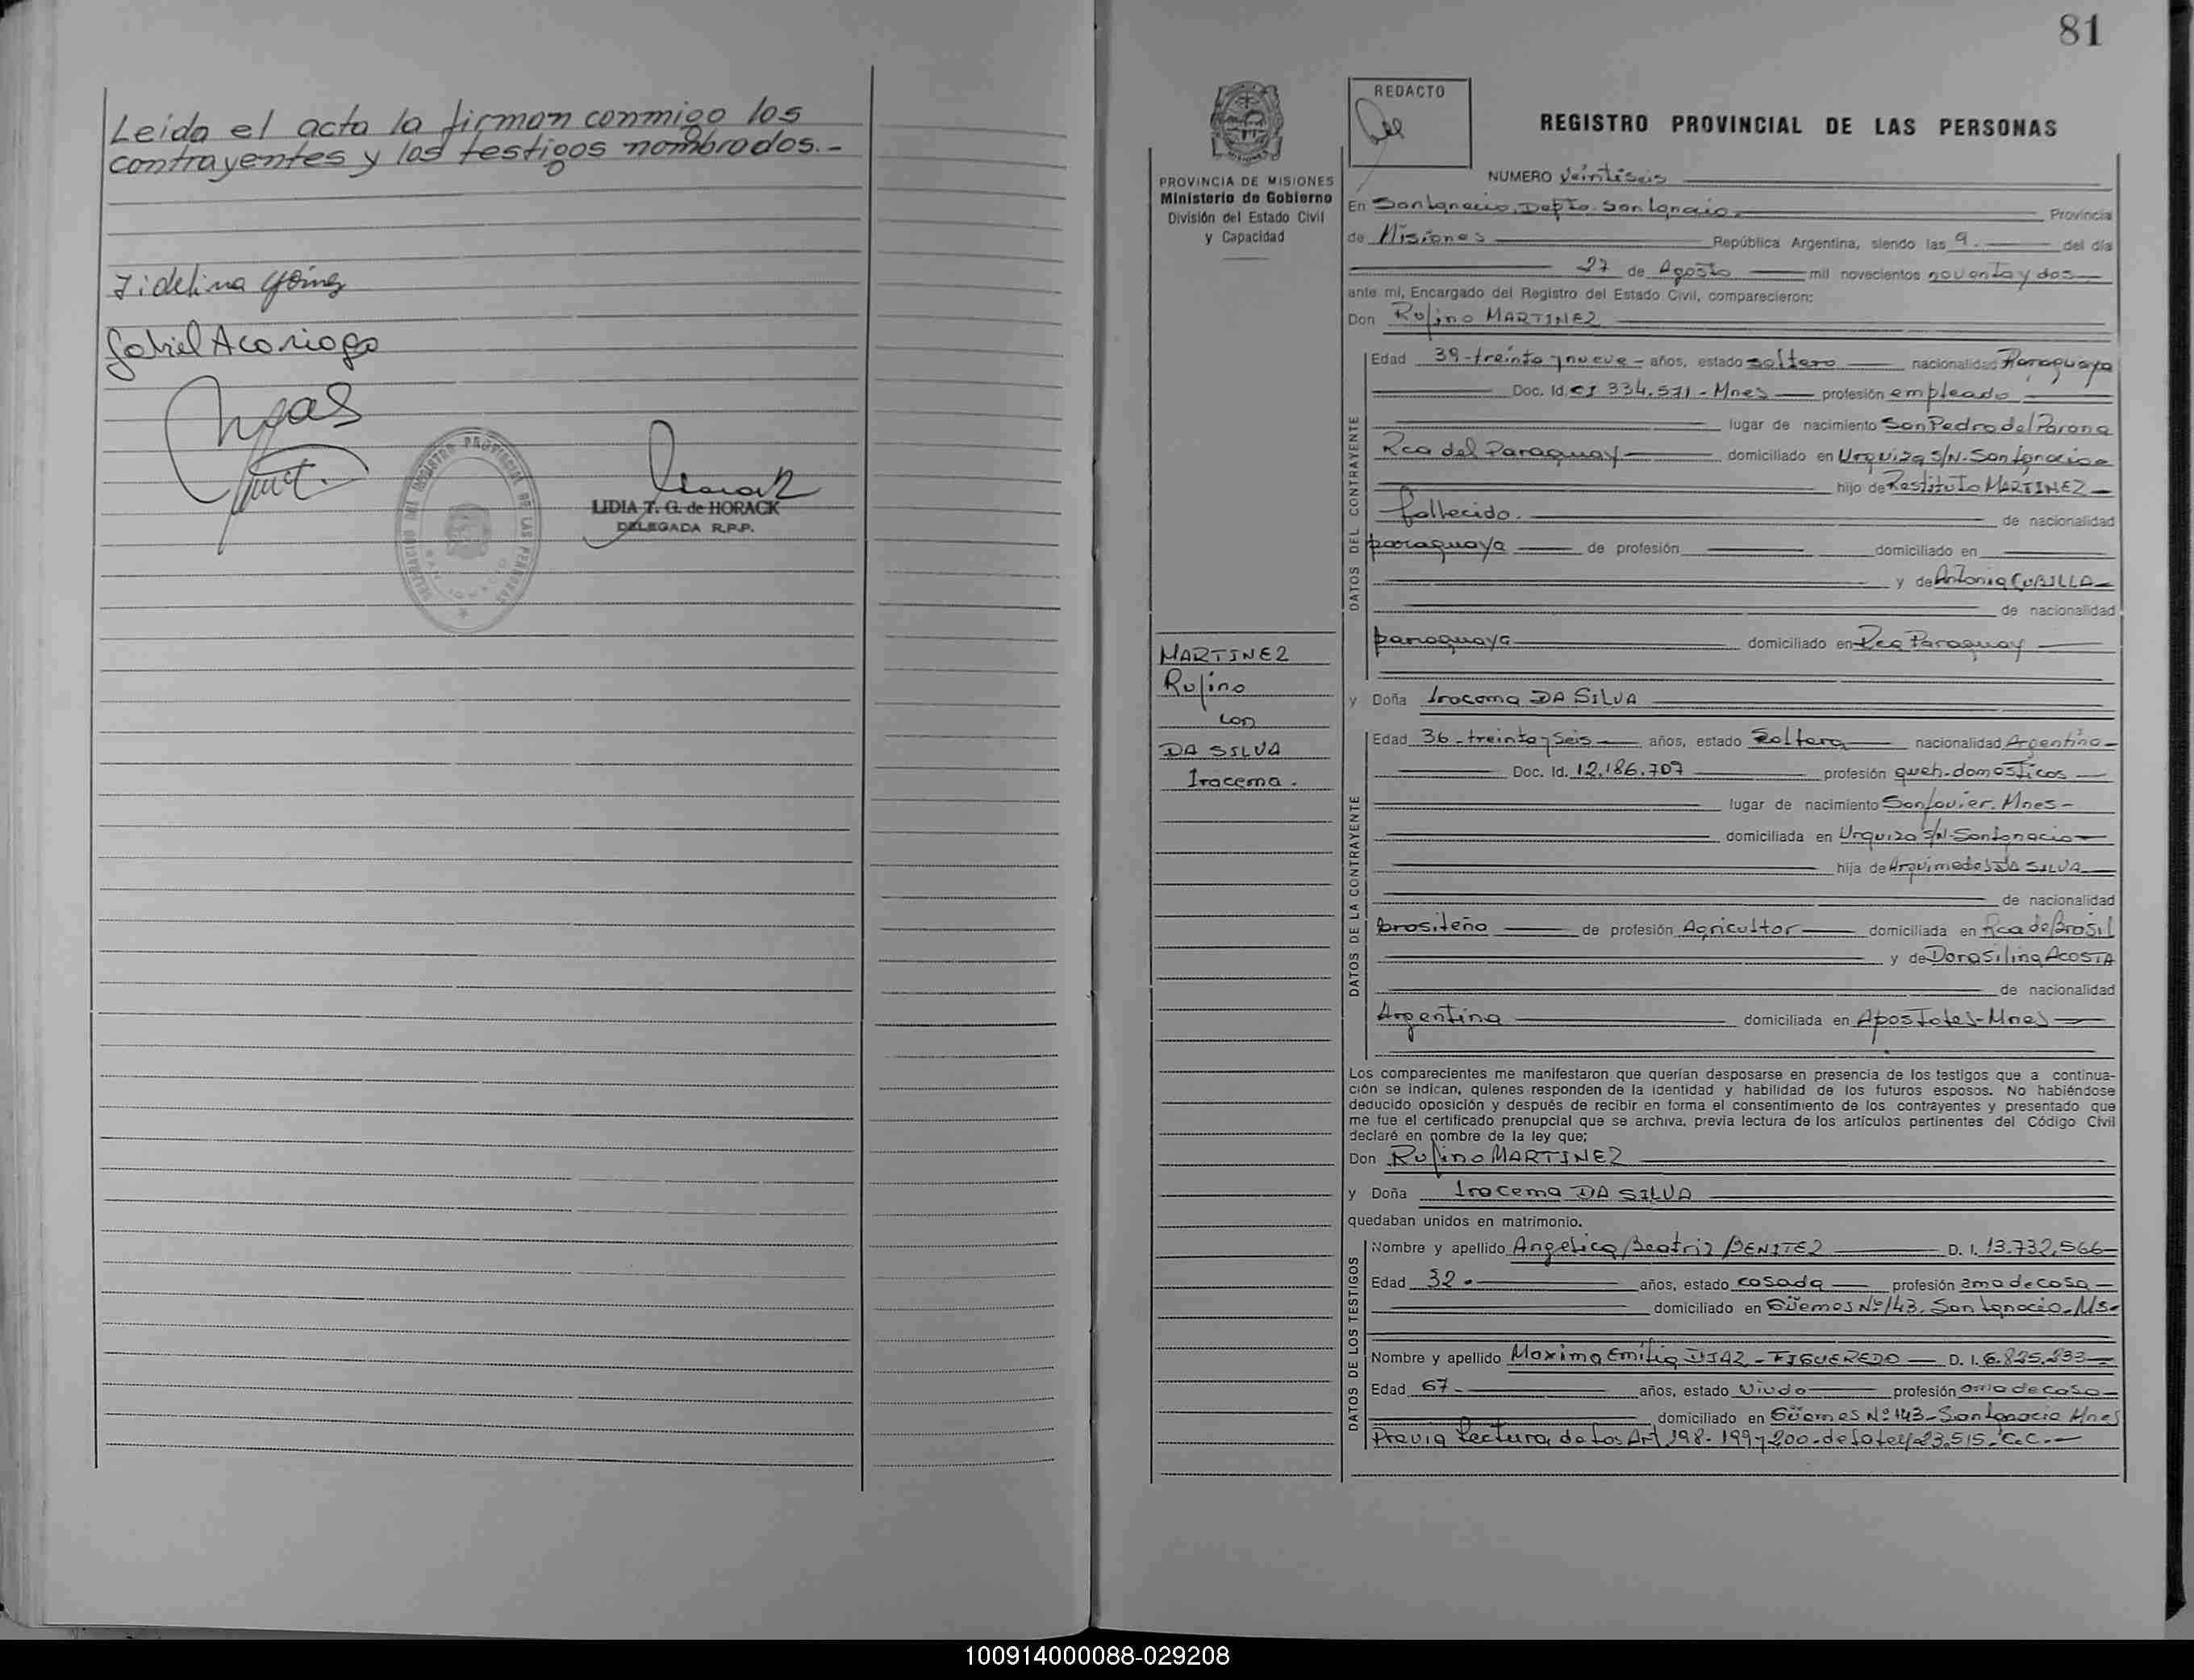 Leida el acta la firman conmigo los
contrayentes y los testigos nombrados.-
Fidelina Gómez
Gabriel
LIDIA T. G. de HORACK
DELEGADA R.P.P.
81
REDACTO
REGISTRO PROVINCIAL DE LAS PERSONAS
PROVINCIA DE MISIONES
Ministerio de Gobierno
División del Estado Civil
y Capacidad
MARTINEZ
Rufino
con
DA SILVA
Iracema.
NUMERO Veintiseis
En San Ignacio, Depto. San Ignacio. Provincia
de Misiones República Argentina, siendo las 9. del día
27 de Agosto mil novecientos noventa y dos
ante mi, Encargado del Registro del Estado Civil, comparecieron:
Don Rufino MARTINEZ
DATOS DEL CONTRAYENTE
Edad 39-treinta y nueve- años, estado soltero nacionalidad Paraguaya
Doc. Id. CI 334.571-Mnes profesión empleado
lugar de nacimiento San Pedro del Parana
Rca del Paraguay domiciliado en Urquiza S/N. San Ignacio
hijo de Restituto MARTINEZ
fallecido. de nacionalidad
paraguaya de profesión domiciliado en
y de Antonia CUBILLA
de nacionalidad
paraguaya domiciliado en Rca Paraguay
y Doña Iracema DA SILVA
DATOS DE LA CONTRAYENTE
Edad 36-treinta y seis años, estado Soltera nacionalidad Argentina-
Doc. Id. 12.186.709 profesión queh. domésticos
lugar de nacimiento San Javier. Mnes-
domiciliada en Urquiza S/N-San Ignacio
hija de Arquimedes DA SILVA
de nacionalidad
brasileña de profesión Agricultor domiciliada en Rca de Brasil
y de Dorasilina ACOSTA
de nacionalidad
Argentina domiciliada en Apostoles-Mnes
Los comparecientes me manifestaron que querían desposarse en presencia de los testigos que a continua-
ción se indican, quienes responden de la identidad y habilidad de los futuros esposos. No habiéndose
deducido oposición y después de recibir en forma el consentimiento de los contrayentes y presentado que
me fue el certificado prenupcial que se archiva, previa lectura de los artículos pertinentes del Código Civil
declaré en nombre de la ley que;
Don Rufino MARTINEZ
y Doña Iracema DA SILVA
quedaban unidos en matrimonio.
DATOS DE LOS TESTIGOS
Nombre y apellido Angelica Beatriz BENITEZ D. I. 13.732.566
Edad 32. años, estado casada profesión ama de casa
domiciliado en Güemes Nº 143. San Ignacio-Ms-
Nombre y apellido Maxima Emilia DIAZ-FIGUEREDO D. I. 6.825.233
Edad 67- años, estado Viuda profesión ama de casa
domiciliado en Güemes Nº 143-San Ignacio Mnes
Previa lectura de los Art 198-199 y 200-de la ley 23.515. C.C.-
100914000088-029208